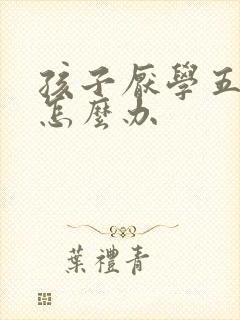 孩子厭學五
怎麼办
葉禮青